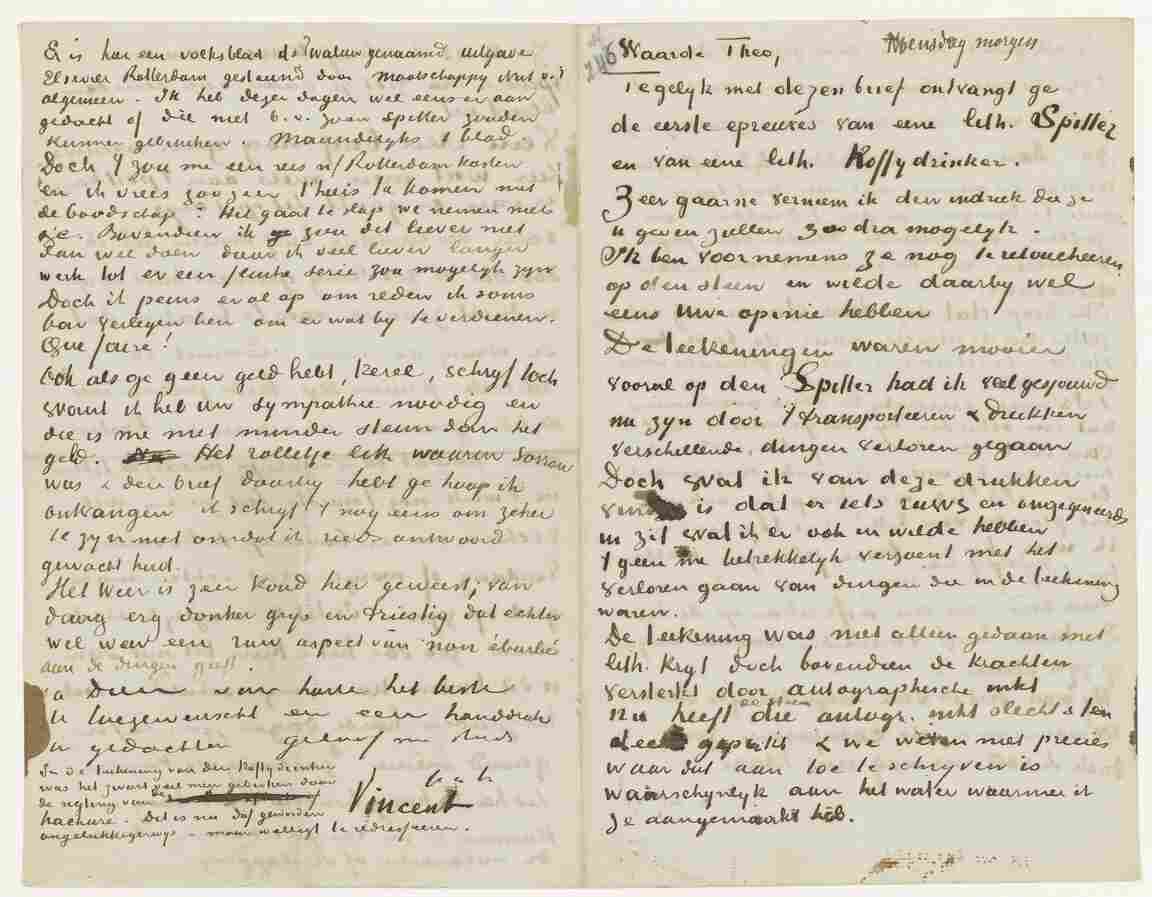 Er is hier een volksblad de Zwaluw genaamd, uitgave
Elsevier Rotterdam gesteund door maatschappij Nut v. 't
algemeen. Ik heb dezer dagen wel eens er aan
gedacht of die niet b.v. zoon Spitter zouden
kunnen gebruiken. Maandelyks 1 blad.
Doch 't zou me een reis n/ Rotterdam kosten
en ik vrees zoo zeer t'huis te komen met
de boodschap: Het gaat te slap we nemen niet
Bovendien ik zou dit liever niet
dan wel doen daar ik veel liever langer
werk tot er een flinke serie zou mogelyk zyn
Doch ik peins er al op om reden ik soms
bar verlegen ben om er wat by te verdienen.
Que faire!
Ook als ge geen geld hebt, kerel, schryf toch
want ik heb uw sympathie noodig en
die is me niet minder steun dan het
geld. Het rolletje lith waarin Sorrow
was & den brief daarby hebt ge hoop ik
ontvangen ik schryf 't nog eens om zeker
te zyn niet omdat ik reeds antwoord
gewacht had.
Het Weer is zeer koud hier geweest; van
daag erg donker grijs en triestig dat echter
wel weer een ruw aspect van non ébarbé
aan de dingen geeft.
a Dieu van harte het beste
U toegewenscht en een handdruk
in gedachten geloof me steeds
t à t
Vincent
In de teekening van den Koffydrinker
was het zwart veel meer gebroken door
de regling van de
hachure. Dit is nu dof geworden
ongelukkigerwys - maar wellicht te redresseeren.
246
Woensdag morgen
Waarde Theo,
Tegelyk met dezen brief ontvangt ge
de eerste epreuves van eene lith. Spitter
en van eene lith. Koffydrinker.
Zeer gaarne verneem ik den indruk die ze
U geven zullen zoodra mogelyk.
Ik ben voornemens ze nog te retoucheeren
op den steen en wilde daarby wel
eens Uwe opinie hebben
De teekeningen waren mooier
vooral op den Spitter had ik veel gesjouwd
nu zyn door 't transporteeren & drukken
verschillende dingen verloren gegaan
Doch wat ik van deze drukken
vind is dat er iets ruws en ongegeneerds
in zit wat ik er ook in wilde hebben
't geen me betrekkelyk verzoent met het
verloren gaan van dingen die in de teekening
waren.
De teekening was niet alleen gedaan met
lith. kryt doch bovendien de krachten
versterkt door autographische inkt
Nu heeft de steen die autogr. inkt slechts ten
deele gepakt & we weten niet precies
waar dat aan toe te schryven is
waarschynlyk aan het water waarmee ik
ze aangemaakt heb.